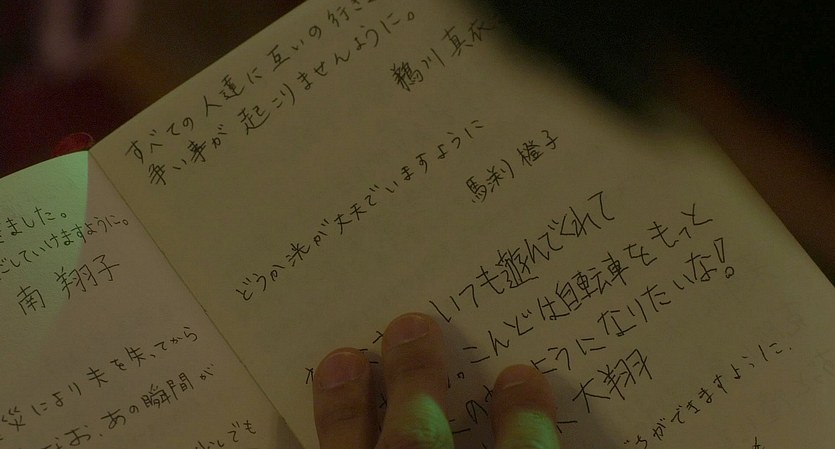 ました。
していけますように。
南 翔子
災により夫を失ってから
なお、あの瞬間が
でも
すべての人達に互いの行き
争い事が起こりませんように。
鵜川 真衣
どうか洸が丈夫でいますように
馬渕 橙子
いつも遊んでくれて
こんどは自転車をもっと
ようになりたいな!
大翔
ができますように。